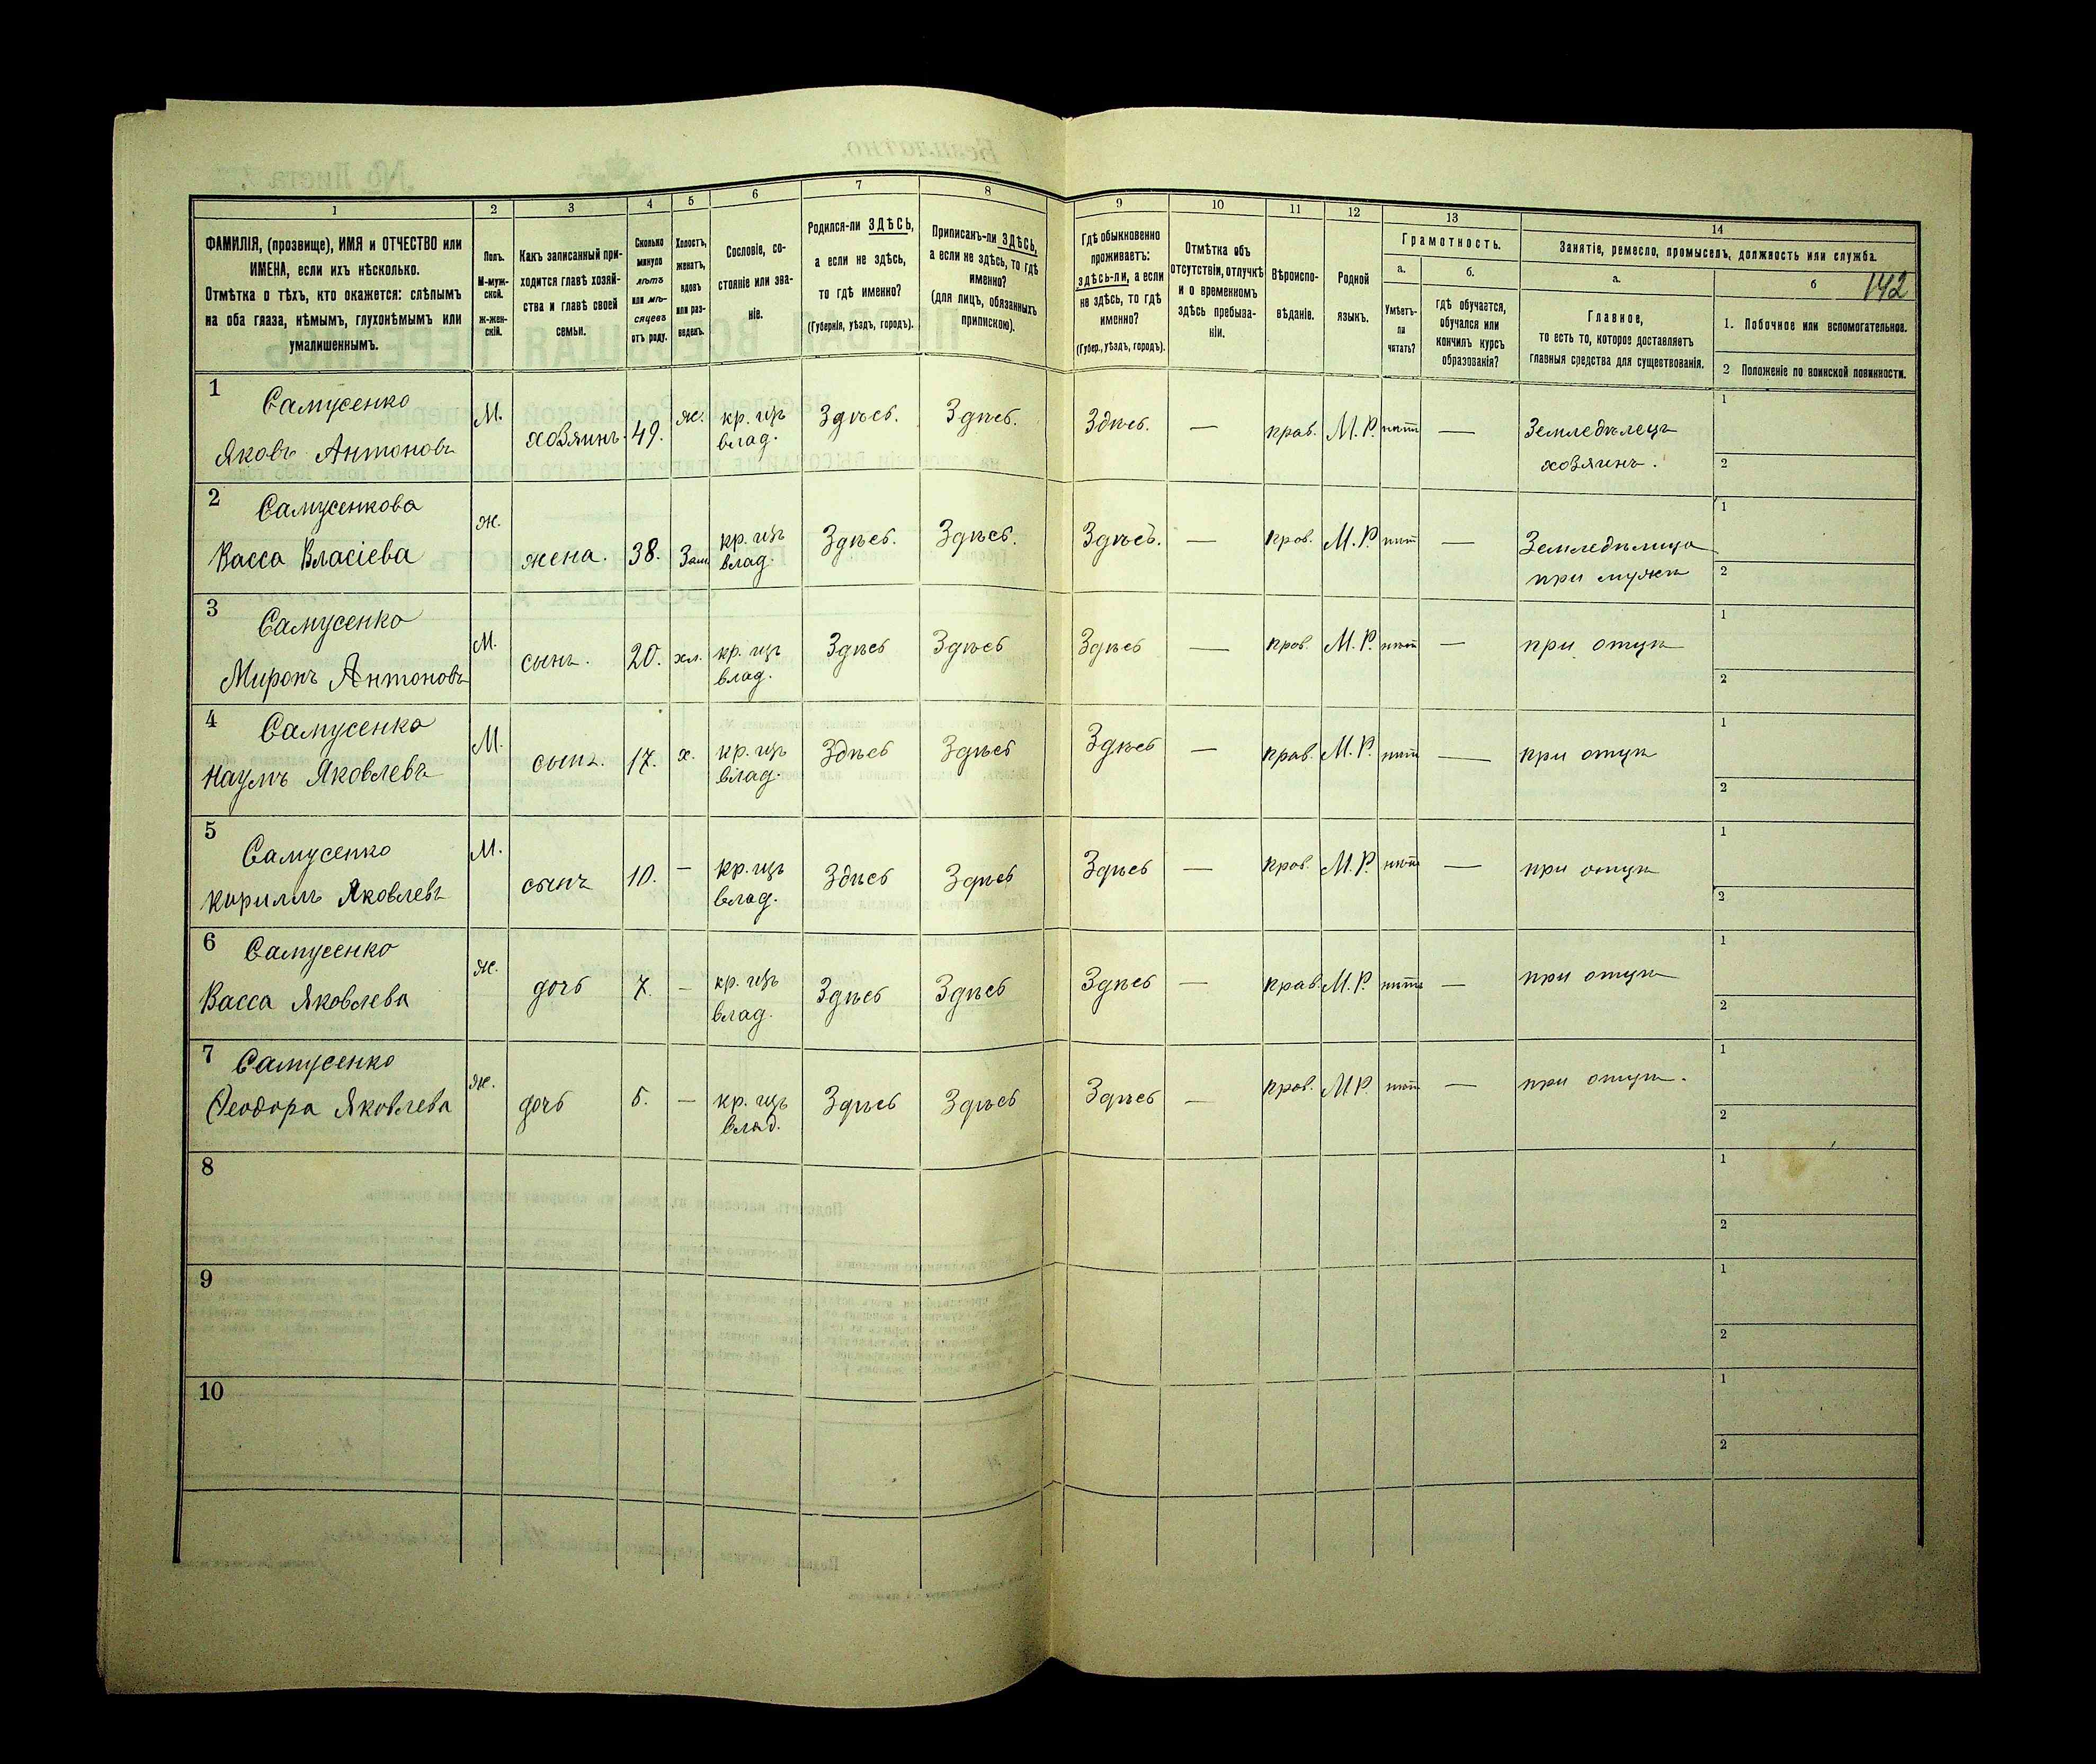 1
2
3
4
5
6
7
8
9
10
11
12
13
14
ФАМИЛІЯ, (прозвище), ИМЯ и ОТЧЕСТВО или
ИМЕНА, если ихъ нѣсколько.
Отмѣтка о тѣхъ, кто окажется: слѣпымъ
на оба глаза, нѣмымъ, глухонѣмымъ или
умалишеннымъ.
Полъ.
М-муж-
ской.
Ж-жен-
скій.
Какъ записанный при-
ходится главѣ хозяй-
ства и главѣ своей
семьи.
Сколько
минуло
лѣтъ
или мѣ-
сяцевъ
отъ роду.
Холостъ,
женатъ,
вдовъ
или раз-
веденъ.
Сословіе, со-
стояніе или зва-
ніе.
Родился-ли ЗДѢСЬ,
а если не здѣсь,
то гдѣ именно?
(Губернія, уѣздъ, городъ).
Приписанъ-ли ЗДѢСЬ,
а если не здѣсь, то гдѣ
именно?
(для лицъ, обязанныхъ
припискою).
Гдѣ обыкновенно
проживаетъ:
здѣсь-ли, а если
не здѣсь, то гдѣ
именно?
(Губер., уѣздъ, городъ).
Отмѣтка объ
отсутствіи, отлучкѣ
и о временномъ
здѣсь пребыва-
ніи.
Вѣроиспо-
вѣданіе.
Родной
языкъ.
Грамотность.
а.
Умѣетъ-
ли
читать?
б.
гдѣ обучается,
обучался или
кончилъ курсъ
образованія?
Занятіе, ремесло, промыселъ, должность или служба.
а.
Главное,
то есть то, которое доставляетъ
главныя средства для существованія.
б
142
1. Побочное или вспомогательное.
2 Положеніе по воинской повинности.
1
Самусенко
Яковъ Антоновъ
М.
хозяинъ.
49.
ж.
кр. изъ
влад.
Здѣсь.
Здѣсь.
Здѣсь.
—
прав.
М.Р.
нѣтъ
—
Земледѣлецъ
хозяинъ.
1
2
2
Самусенкова
Васса Власіева
ж.
жена.
38.
Зам
кр. изъ
влад.
Здѣсь.
Здѣсь.
Здѣсь.
—
прав.
М.Р.
нѣтъ
—
Земледѣлица
при мужѣ
1
2
3
Самусенко
Миронъ Антоновъ
М.
сынъ.
20.
хол.
кр. изъ
влад.
Здѣсь
Здѣсь
Здѣсь
—
прав.
М.Р.
нѣтъ
—
при отцѣ
1
2
4
Самусенко
Наумъ Яковлевъ
М.
сынъ.
17.
х.
кр. изъ
влад.
Здѣсь
Здѣсь
Здѣсь
—
прав.
М.Р.
нѣтъ
—
при отцѣ
1
2
5
Самусенко
Кириллъ Яковлевъ
М.
сынъ
10.
—
кр. изъ
влад.
Здѣсь
Здѣсь
Здѣсь
—
прав.
М.Р.
нѣтъ
—
при отцѣ
1
2
6
Самусенко
Васса Яковлева
ж.
дочь
7.
—
кр. изъ
влад.
Здѣсь
Здѣсь
Здѣсь
—
прав.
М.Р.
нѣтъ
—
при отцѣ
1
2
7
Самусенко
Ѳеодора Яковлева
ж.
дочь
5.
—
кр. изъ
влад.
Здѣсь
Здѣсь
Здѣсь
—
прав.
МР.
нѣтъ
—
при отцѣ.
1
2
8
1
2
9
1
2
10
1
2